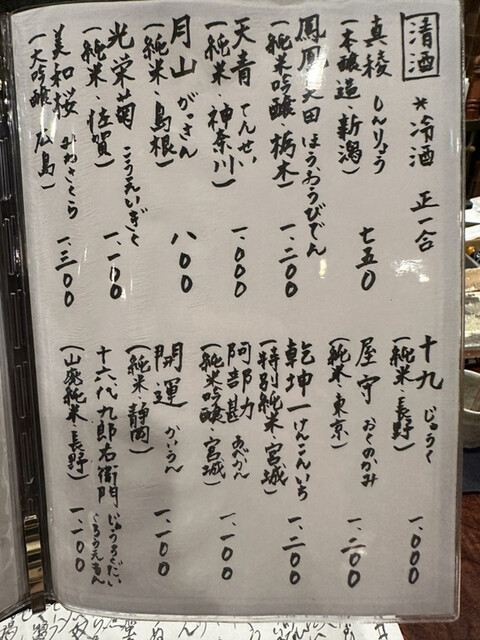 清酒 *冷酒 正一合
真稜 しんりょう
(本醸造・新潟) 七五〇
鳳凰美田 ほうおうびでん
(純米吟醸・栃木) 一、二〇〇
天青 てんせい
(純米・神奈川) 一、〇〇〇
月山 がっさん
(純米・島根) 八〇〇
光栄菊 こうえいぎく
(純米・佐賀) 一、一〇〇
美和桜 みわさくら
(大吟醸・広島) 一、三〇〇
十九 じゅうく
(純米・長野) 一、〇〇〇
屋守 おくのかみ
(純米・東京) 一、二〇〇
乾坤一 けんこんいち
(特別純米・宮城) 一、二〇〇
阿部勘 あべかん
(純米吟醸・宮城) 一、一〇〇
開運 かいうん
(純米・静岡) 一、〇〇〇
十六代九郎右衛門 じゅうろくだいくろうえもん
(山廃純米・長野) 一、一〇〇